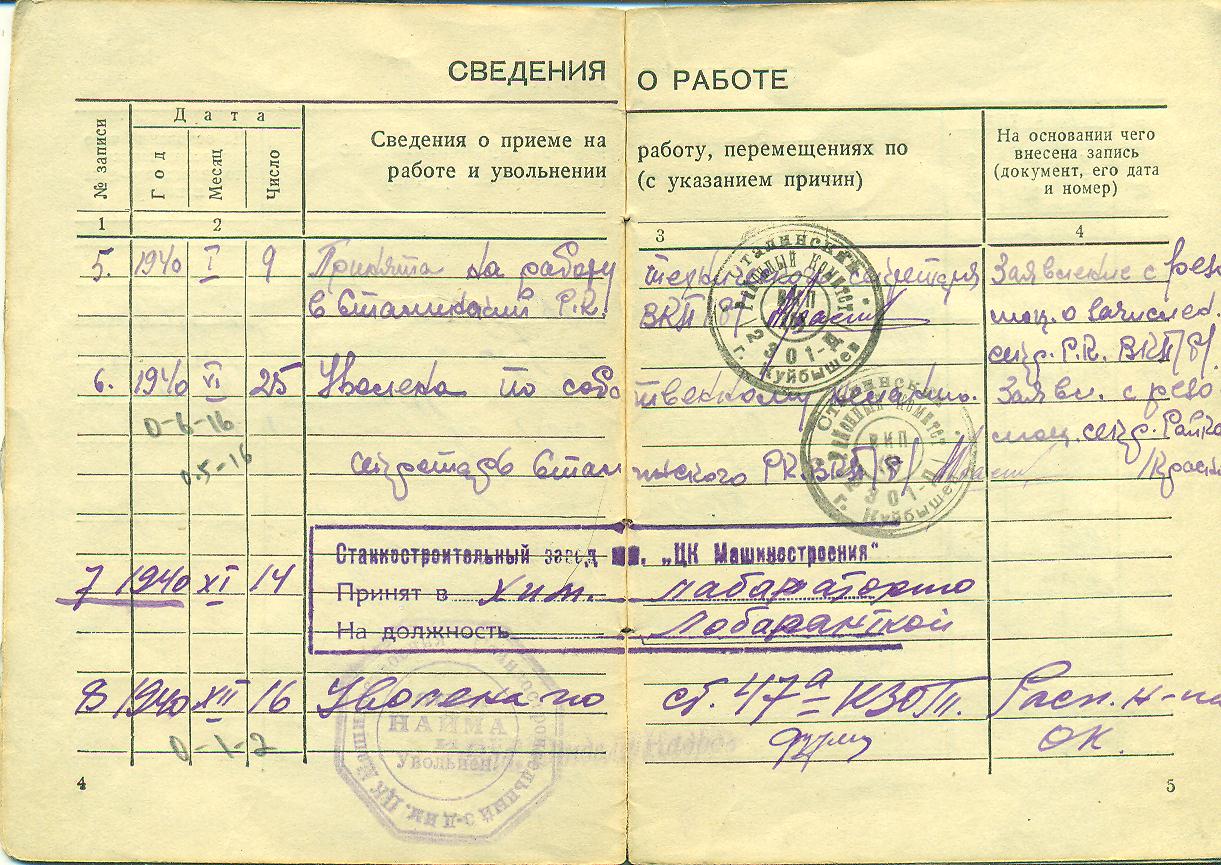 СВЕДЕНИЯ О РАБОТЕ
№ записи
Дата
Год
Месяц
Число
Сведения о приеме на работу, перемещениях по
работе и увольнении (с указанием причин)
На основании чего
внесена запись
(документ, его дата
и номер)
1 2 3 4
5. 1940 I 9 Принята на работу секретаря Заявление с резо
в Сталинский Р.К. ВКП/б/
люц. о зачислен.
секр. Р.К. ВКП/б/
6. 1940 VI 25 Уволена по собственному желанию. Заявл. с резо
0-6-16
люц. секр. Райко
0.5-16
секретарь Сталинского РК ВКП/б/
/Красн
Сталинский
Районный Комитет
ВКП
2301-П
г. Куйбышев
Сталинский
Районный Комитет
ВКП
2301-П
г. Куйбышев
Станкостроительный завод им. „ЦК Машиностроения“
7 1940 XI 14 Принят в хим. лабараторию
На должность Лобаранткой
8 1940 XII 16 Уволена по ст. 47а КЗОТ. Расп. н-ка
0-1-2
ОК.
НАЙМА
Увольнен.
4
5